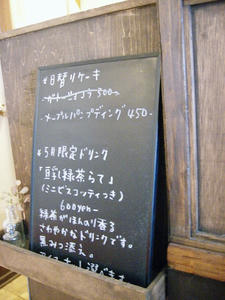 *日替りケーキ
-ガトーショコラ 500-
-メープルパンプディング 450-
*5月限定ドリンク
「豆乳緑茶らて」
(ミニビスコッティつき)
600yen-
緑茶がほんのり香る
さわやかなドリンクです。
黒みつ添え。